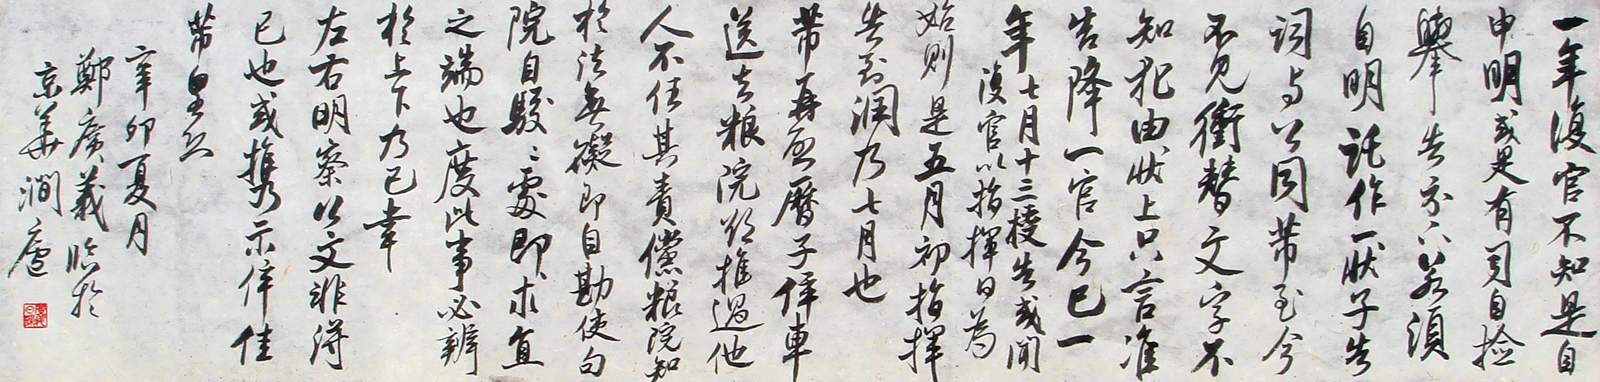 一年復官不知是自
申明或是有司自捡
舉告示下若須
自明託作一狀子告
詞与公同带至今
不見衝替文字不
知犯由狀上只言准
告降一官今已一
年七月十三授告或闻
復官以指揮日为
始則是五月初指揮
告到润乃七月也
带再 曆子倅車
送去粮院 推過他
人不任其責儻粮院知
於法無礙即自勘使勾
院自駮駮處即求直
之端也度此事必辨
於上下乃已幸
左右明察公文非得
已也或携示倅佳
带皇恐
辛卯夏月
鄭廣義臨於
京華澗廬